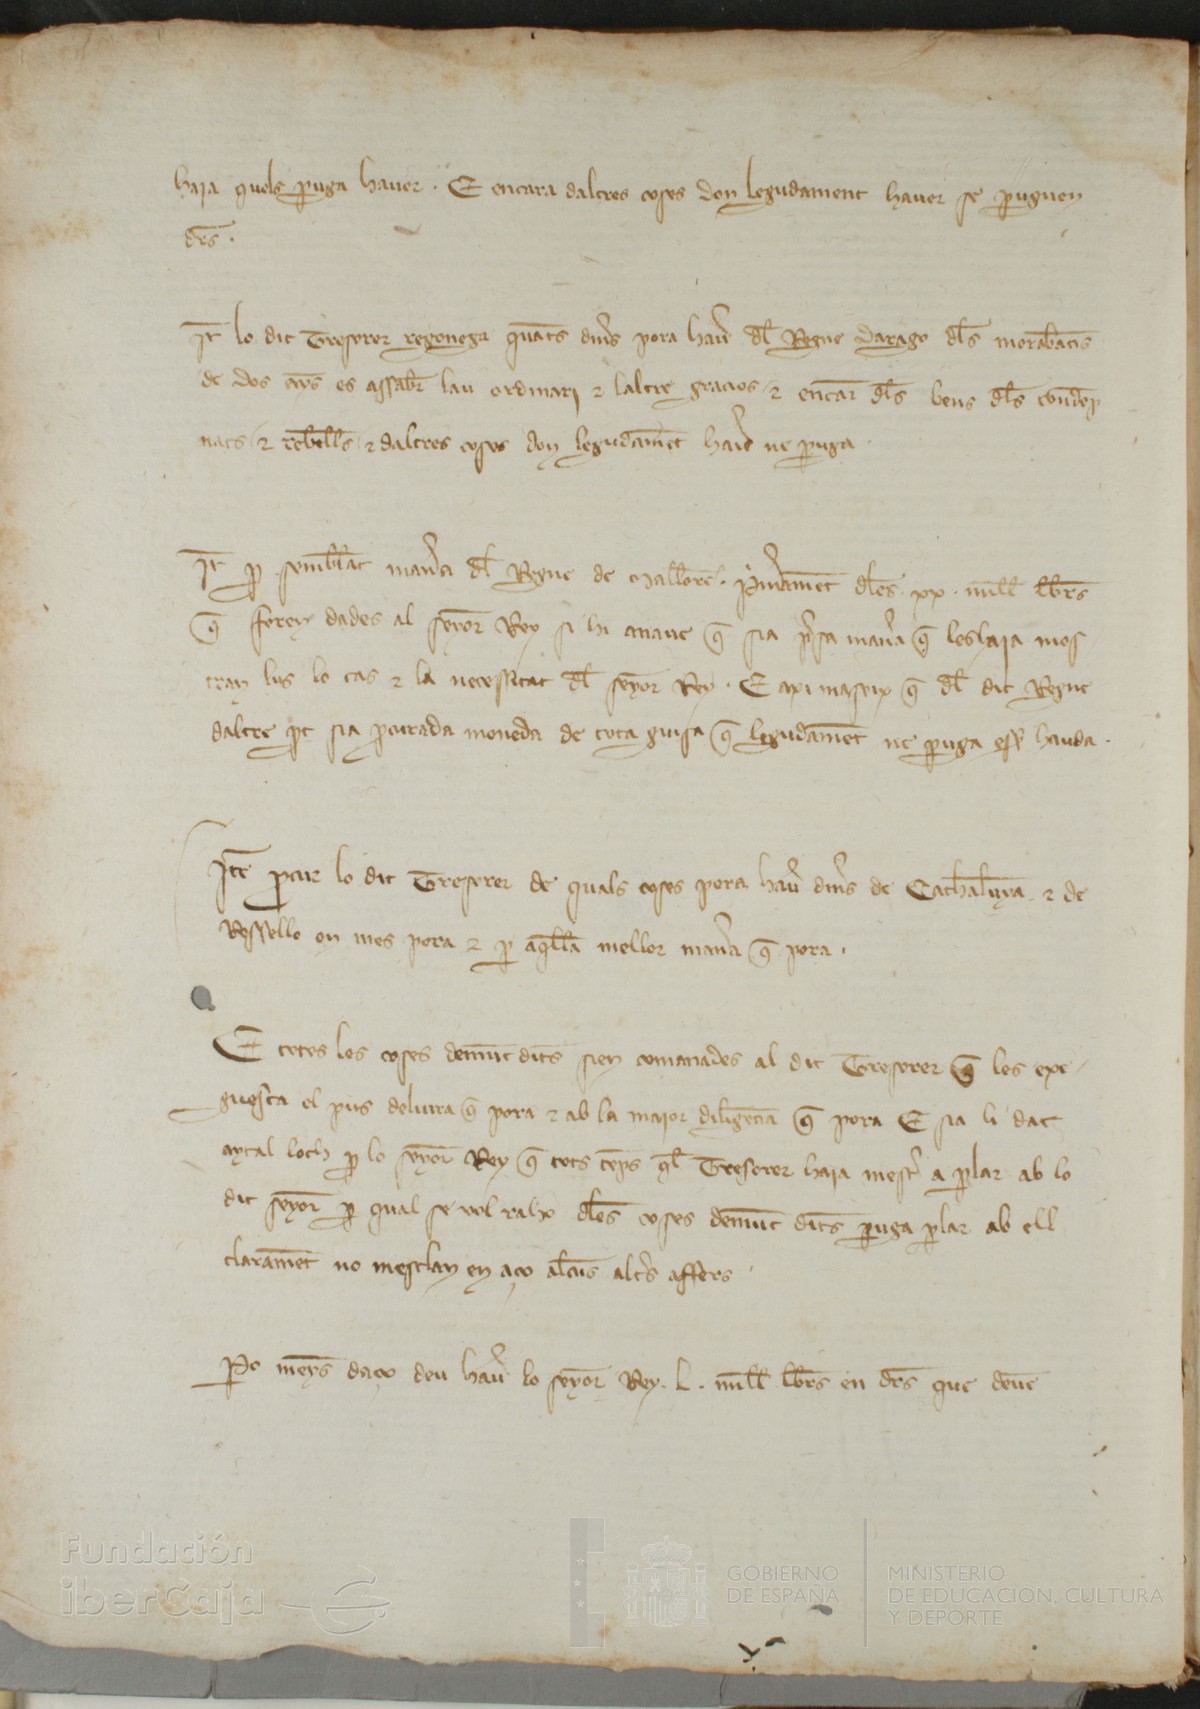 haia quels puga haver. E encara daltres coses don legudament haver se puguen
drs.
It lo dic Tresorer regonega quants dines pora haver dl Regne darago dls morabatis
de dos ayns es assaber lau ordinari e laltre gracios e encar dls bens dls condep
nats e rebells e daltres coses don legudament haver ne puga.
It per semblat manera dl Regne de Mallorc. Primerament dles xx. mill lbrs
q foren dades al senyor Rey si hi anave q sia presa manera q les haia mos
tran lus lo cas e la necessitat dl senyor Rey. E axi mateix q dl dit Regne
daltre part sia procurada moneda de tota guisa q legudament ne puga esser hauda.
Item procur lo dit Tresorer de quals coses pora haver dines de Cathalunya e de
Rossello on mes pora e per aqlla mellor manera q pora.
E totes les coses demunt dits sien comanades al dit Tresorer q les exe
guesca el pus delivra q pora e ab la maior diligencia q pora E sia li dat
aytal loch per lo senyor Rey q tots temps ql Tresorer haia mester a parlar ab lo
dit senyor per qual se vol raho dles coses demunt dits puga parlar ab ell
clarament no mesclan en aço alcuns altres affers.
Pero menys daço deu haver lo senyor Rey. L. mill lbrs en drs que deuen
Fundación
iberCaja
GOBIERNO
DE ESPAÑA
MINISTERIO
DE EDUCACIÓN, CULTURA
Y DEPORTE